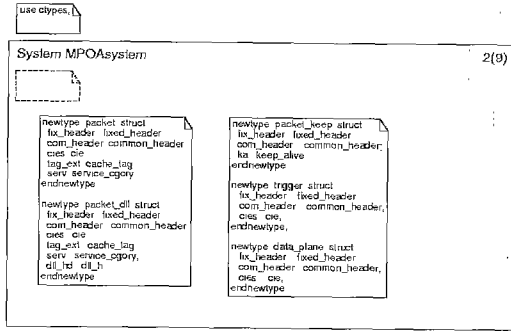 use ctypes,
System MPOAsystem
2(9)
newtype packet struct
fix_header fixed_header
com_header common_header
cies cie
tag_ext cache_tag
serv service_cgory
endnewtype
newtype packet_dll struct
fix_header fixed_header
com_header common_header
cies cie
tag_ext cache_tag
serv service_cgory,
dll_hd dll_h
endnewtype
newtype packet_keep struct
fix_header fixed_header
com_header common_header,
ka keep_alive
endnewtype
newtype trigger struct
fix_header fixed_header
com_header common_header,
cies cie,
endnewtype,
newtype data_plane struct
fix_header fixed_header
com_header common_header,
cies cie,
endnewtype